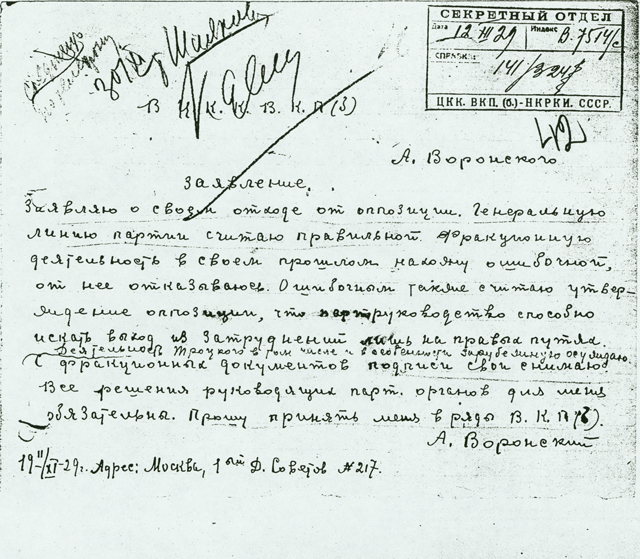 СЕКРЕТНЫЙ ОТДЕЛ
Дата 12 XII 29 Индекс В. 7514/с
СПРАВКИ:
141/
ЦКК. ВКП. (б.)-НКРКИ. СССР.
42
В Ц. К. К. В. К. П (б)
А. Воронского
Заявление.
Заявляю о своем отходе от оппозиции. Генеральную
линию партии считаю правильной. Фракционную
деятельность в своем прошлом нахожу ошибочной,
от нее отказываюсь. Ошибочным также считаю утвер-
ждение оппозиции, что партруководство способно
искать выход из затруднений лишь на правых путях.
Деятельность Троцкого в том числе и в особенности зарубежную осуждаю.
С фракционных документов подписи свои снимаю
Все решения руководящих парт. органов для меня
обязательны. Прошу принять меня в ряды В. К. П (б).
А. Воронский
19 11/XI-29г. Адрес: Москва, 1ый Д. Советов № 217.